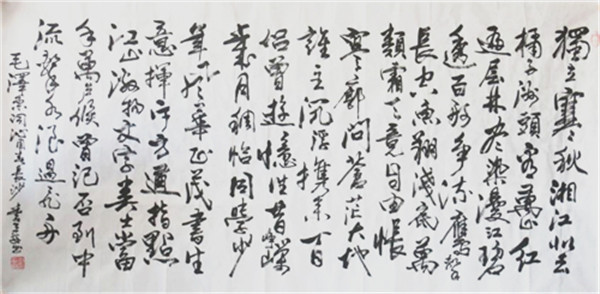 獨立寒秋湘江北去
橘子洲頭看萬山紅
遍層林盡染漫江碧
透百舸爭流鷹擊
長空魚翔淺底萬
類霜天竟自由悵
寥廓問蒼茫大地
誰主沉浮攜來百
侶曾遊憶往昔崢嶸
歲月稠恰同學少
年風華正茂書生
意揮斥方遒指點
江山激揚文字糞土當
年萬户侯曾記否到中
流擊水浪遏飛舟
毛澤東詞沁園春長沙